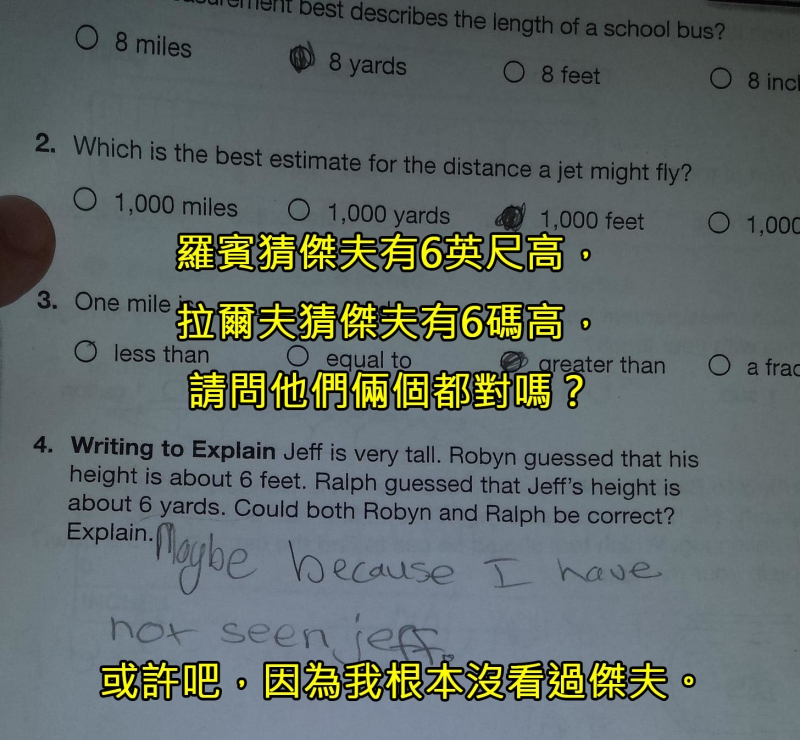 best describes the length of a school bus?
8 miles 8 yards 8 feet 8
2. Which is the best estimate for the distance a jet might fly?
1,000 miles 1,000 yards 1,000 feet
羅賓猜傑夫有6英尺高，
3. One mile
拉爾夫猜傑夫有6碼高，
less than equal to greater than a
請問他們倆個都對嗎？
4. Writing to Explain Jeff is very tall. Robyn guessed that his
height is about 6 feet. Ralph guessed that Jeff's height is
about 6 yards. Could both Robyn and Ralph be correct?
Explain. Maybe because I have
not seen jeff.
或許吧，因為我根本沒看過傑夫。